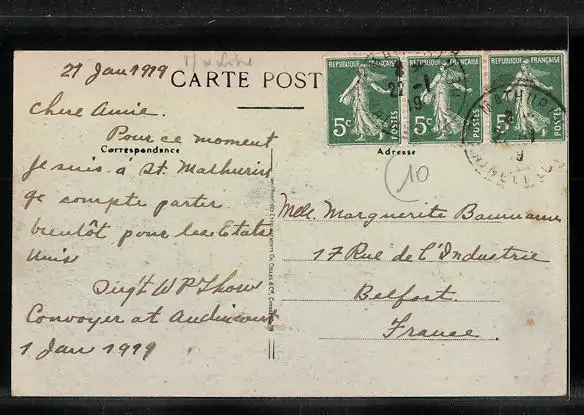 21 Jan 1919
CARTE POST
RÉPUBLIQUE FRANÇAISE
5c POSTES
RÉPUBLIQUE FRANÇAISE
5c POSTES
RÉPUBLIQUE FRANÇAISE
5c POSTES
22 -1
19
Chere Amie.
Pour ce moment
Correspondance
je suis à St. Mathurin
je compte partir
bientôt pour les Etats
Unis
Sug't W P Show
Convoyer at Audincourt
1 Jan 1919
Adresse
10
Mlle. Marguerite Baumann
17 Rue de l'Industrie
Belfort.
France.